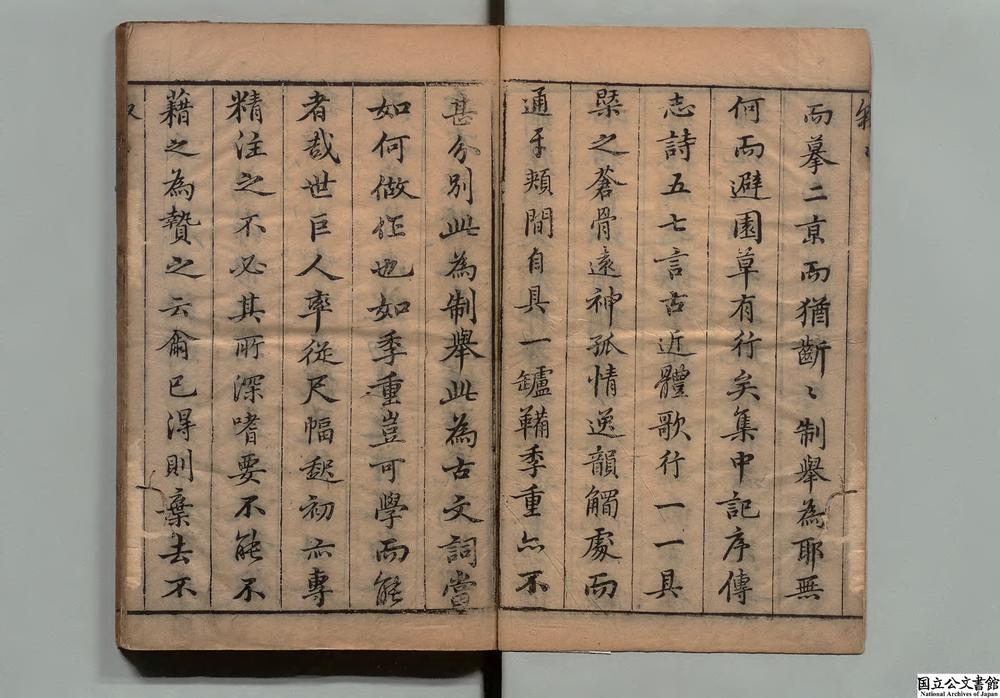 而摹二京而猶斷〻制舉為耶無
何而避園草有行矣集中記序傳
志詩五七言古近體歌行一一具
槩之蒼骨遠神孤情逸韻觸處而
通牙頰間自具一罏鞲季重亦不
甚分別此為制舉此為古文詞當
如何做作也如季重豈可學而能
者哉世巨人率從尺幅起初亦專
精注之不必其所深嗜要不能不
藉之為贄之云爾已得則棄去不
国立公文書館
National Archives of Japan